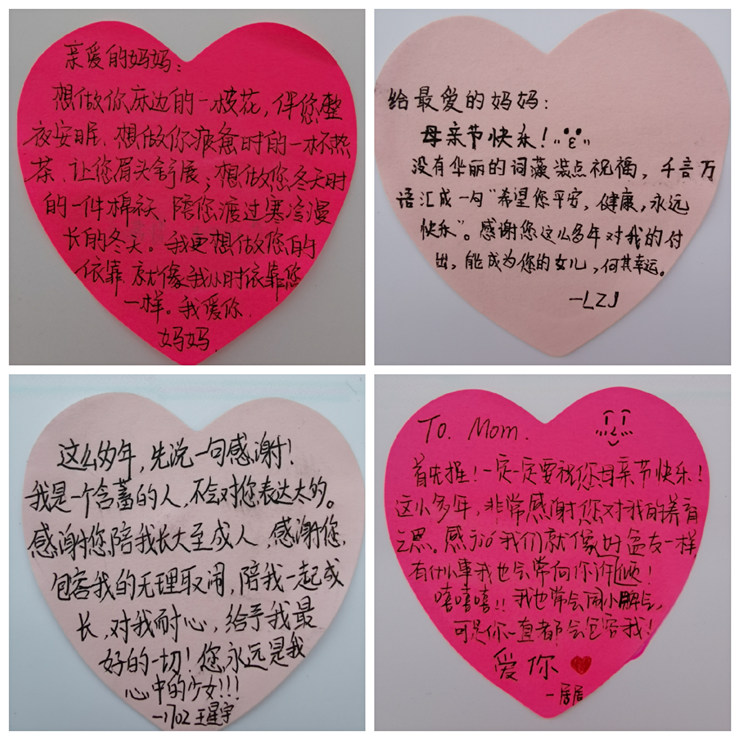 亲爱的妈妈：
想做你床边的一枝花，伴您整
夜安眠、想做你疲惫时的一杯热
茶、让您眉头舒展；想做您冬天时
的一件棉袄、陪您渡过寒冷漫
长的冬天。我更想做您的
依靠 就像我小时依靠您
一样。我爱你.
妈妈.
给最爱的妈妈：
母亲节快乐！
没有华丽的词藻装点祝福，千言万
语汇成一句“希望您平安，健康，永远
快乐”。感谢您这么多年对我的付
出，能成为您的女儿，何其幸运。
—LZJ
这么多年，先说一句感谢！
我是一个含蓄的人，不会对您表达太多的。
感谢您陪我长大至成人，感谢您，
包容我的无理取闹，陪我一起成
长，对我耐心，给予我最
好的一切！您永远是我
心中的少女!!!
—1702 王星宇
To. Mom.
首先捏！一定一定要祝您母亲节快乐！
这么多年，非常感谢您对我的养育
之恩，感 我们就像好盆友一样
有什么事我也会常向你诉倾！
嘻嘻嘻!! 我也常会闹小脾气，
可是你一直都会包容我！
爱你
—居居